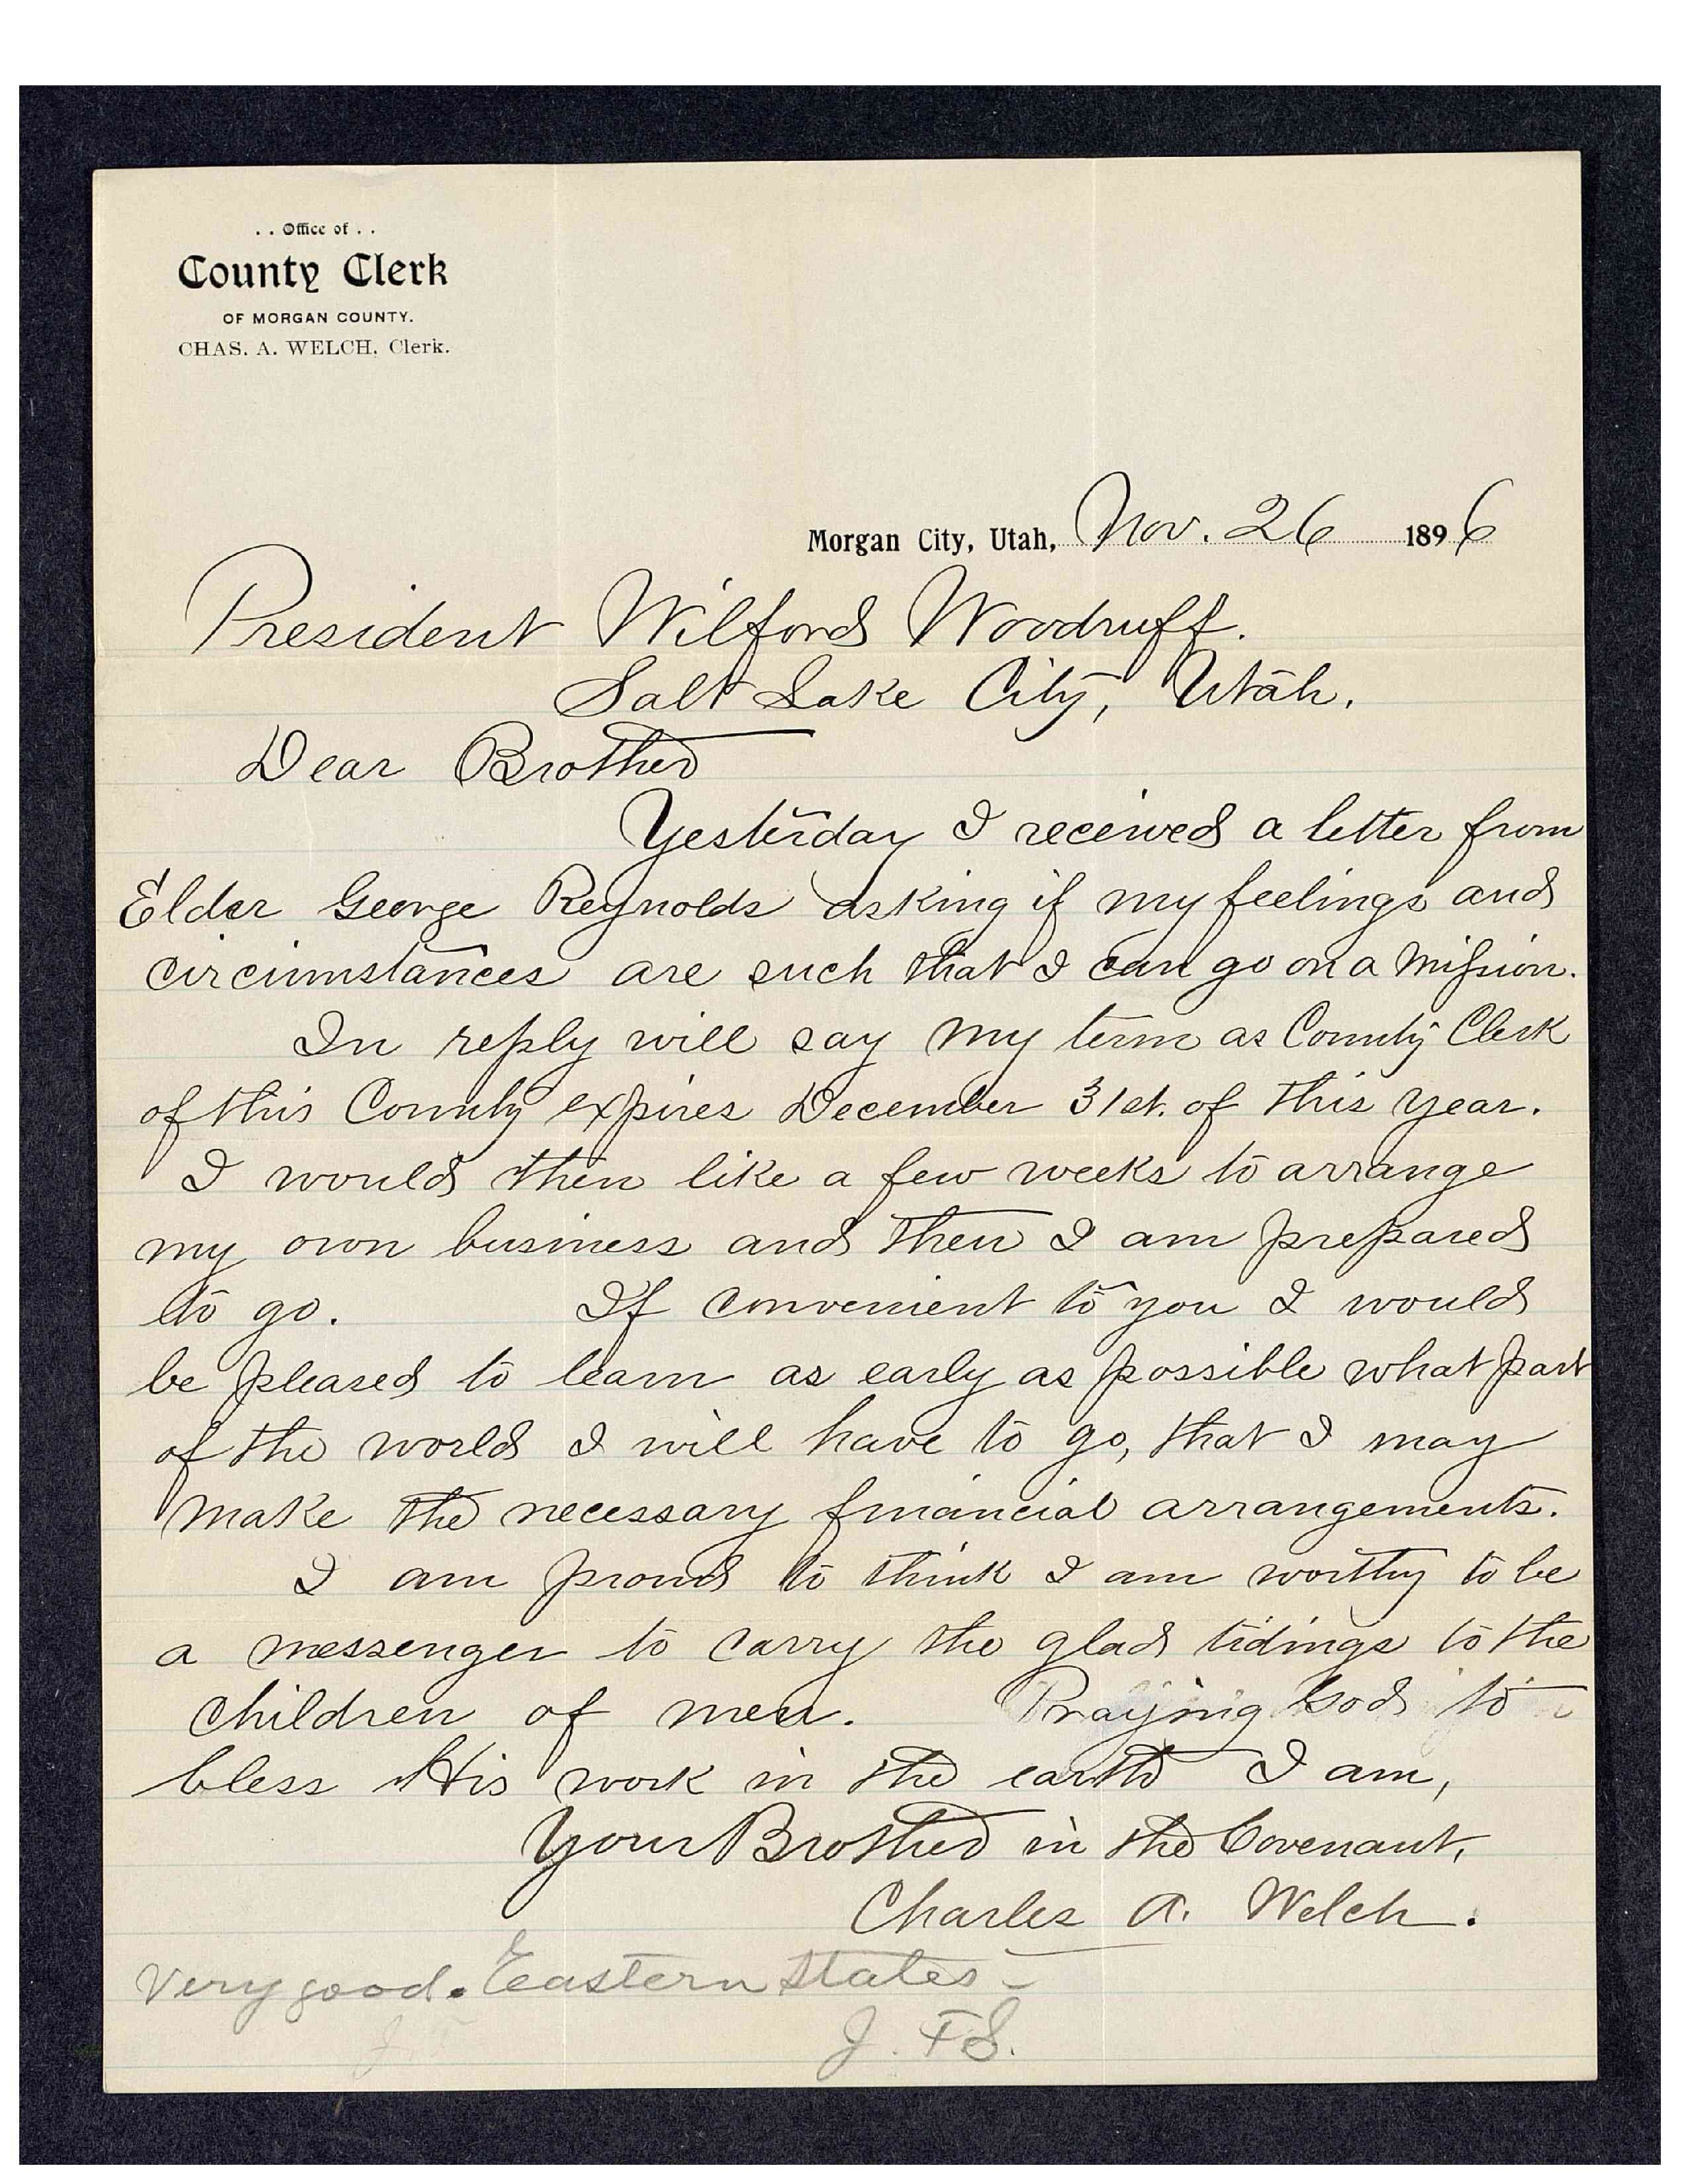 . . Office of . .
County Clerk
OF MORGAN COUNTY.
CHAS. A. WELCH, Clerk.
Morgan City, Utah, Nov. 26 1896
President Wilford Woodruff.
Salt Lake City, Utah.
Dear Brother
Yesterday I received a letter from
Elder George Reynolds asking if my feelings and
circumstances are such that I can go on a Mission.
In reply will say my term as County Clerk
of this County expires December 31st. of this year.
I would then like a few weeks to arrange
my own business and then I am prepared
to go. If convenient to you I would
be pleased to learn as early as possible what part
of the world I will have to go, that I may
make the necessary financial arrangements.
I am proud to think I am worthy to be
a messenger to carry the glad tidings to the
children of men. Praying God to
bless His work in the earth I am,
Your Brother in the Covenant,
Charles A. Welch.
Very good. Eastern States -
J. F S.